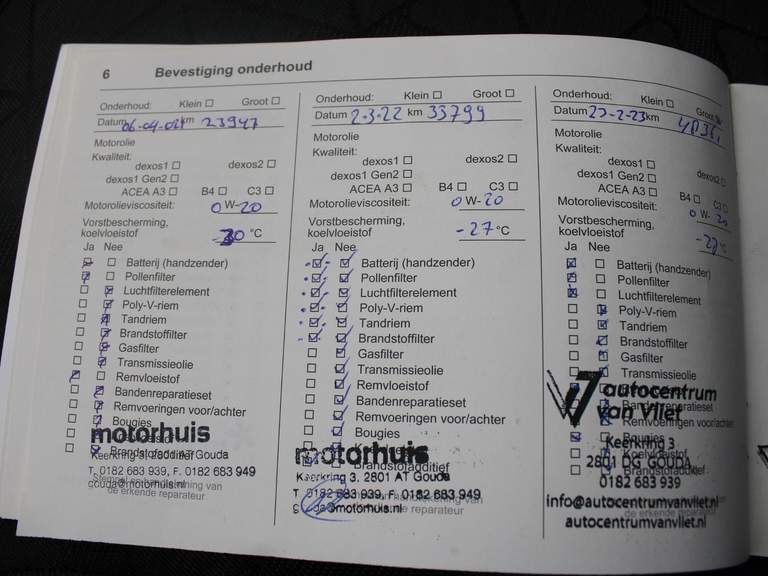 6 Bevestiging onderhoud
Onderhoud: Klein Groot
Datum 06-04-021 km 23947
Motorolie
Kwaliteit:
dexos1 dexos2
dexos1 Gen2
ACEA A3 B4 C3
Motorolieviscositeit: 0 W-20
Vorstbescherming,
koelvloeistof -30 °C
Ja Nee
Batterij (handzender)
Pollenfilter
Luchtfilterelement
Poly-V-riem
Tandriem
Brandstoffilter
Gasfilter
Transmissieolie
Remvloeistof
Bandenreparatieset
Remvoeringen voor/achter
Bougies
motorhuis
Brandstofadditief
Keerkring 3, 2801 AT Gouda
T. 0182 683 939, F. 0182 683 949
gouda@motorhuis.nl
de erkende reparateur
Onderhoud: Klein Groot
Datum 2-3-22 km 33799
Motorolie
Kwaliteit:
dexos1 dexos2
dexos1 Gen2
ACEA A3 B4 C3
Motorolieviscositeit: 0 W-20
Vorstbescherming,
koelvloeistof -27 °C
Ja Nee
Batterij (handzender)
Pollenfilter
Luchtfilterelement
Poly-V-riem
Tandriem
Brandstoffilter
Gasfilter
Transmissieolie
Remvloeistof
Bandenreparatieset
Remvoeringen voor/achter
Bougies
motorhuis
Brandstofadditief
Keerkring 3, 2801 AT Gouda
T 0182 683 939, F. 0182 683 949
@motorhuis.nl
de erkende reparateur
Onderhoud: Klein Groot
Datum 22-2-23 km
Motorolie
Kwaliteit:
dexos1 dexos2
dexos1 Gen2
ACEA A3 B4 C3
Motorolieviscositeit: 0 W-20
Vorstbescherming,
koelvloeistof
Ja Nee
Batterij (handzender)
Pollenfilter
Luchtfilterelement
Poly-V-riem
Tandriem
Brandstoffilter
Gasfilter
Transmissieolie
autocentrum
Bandenreparatieset
van Vliet
Remvoeringen voor/achter
Bougies
Keerkring 3
Koelvloeistof
2801 DG GOUDA
Brandstofadditief
0182 683 939
info@autocentrumvanvliet.nl
de erkende reparateur
autocentrumvanvliet.nl